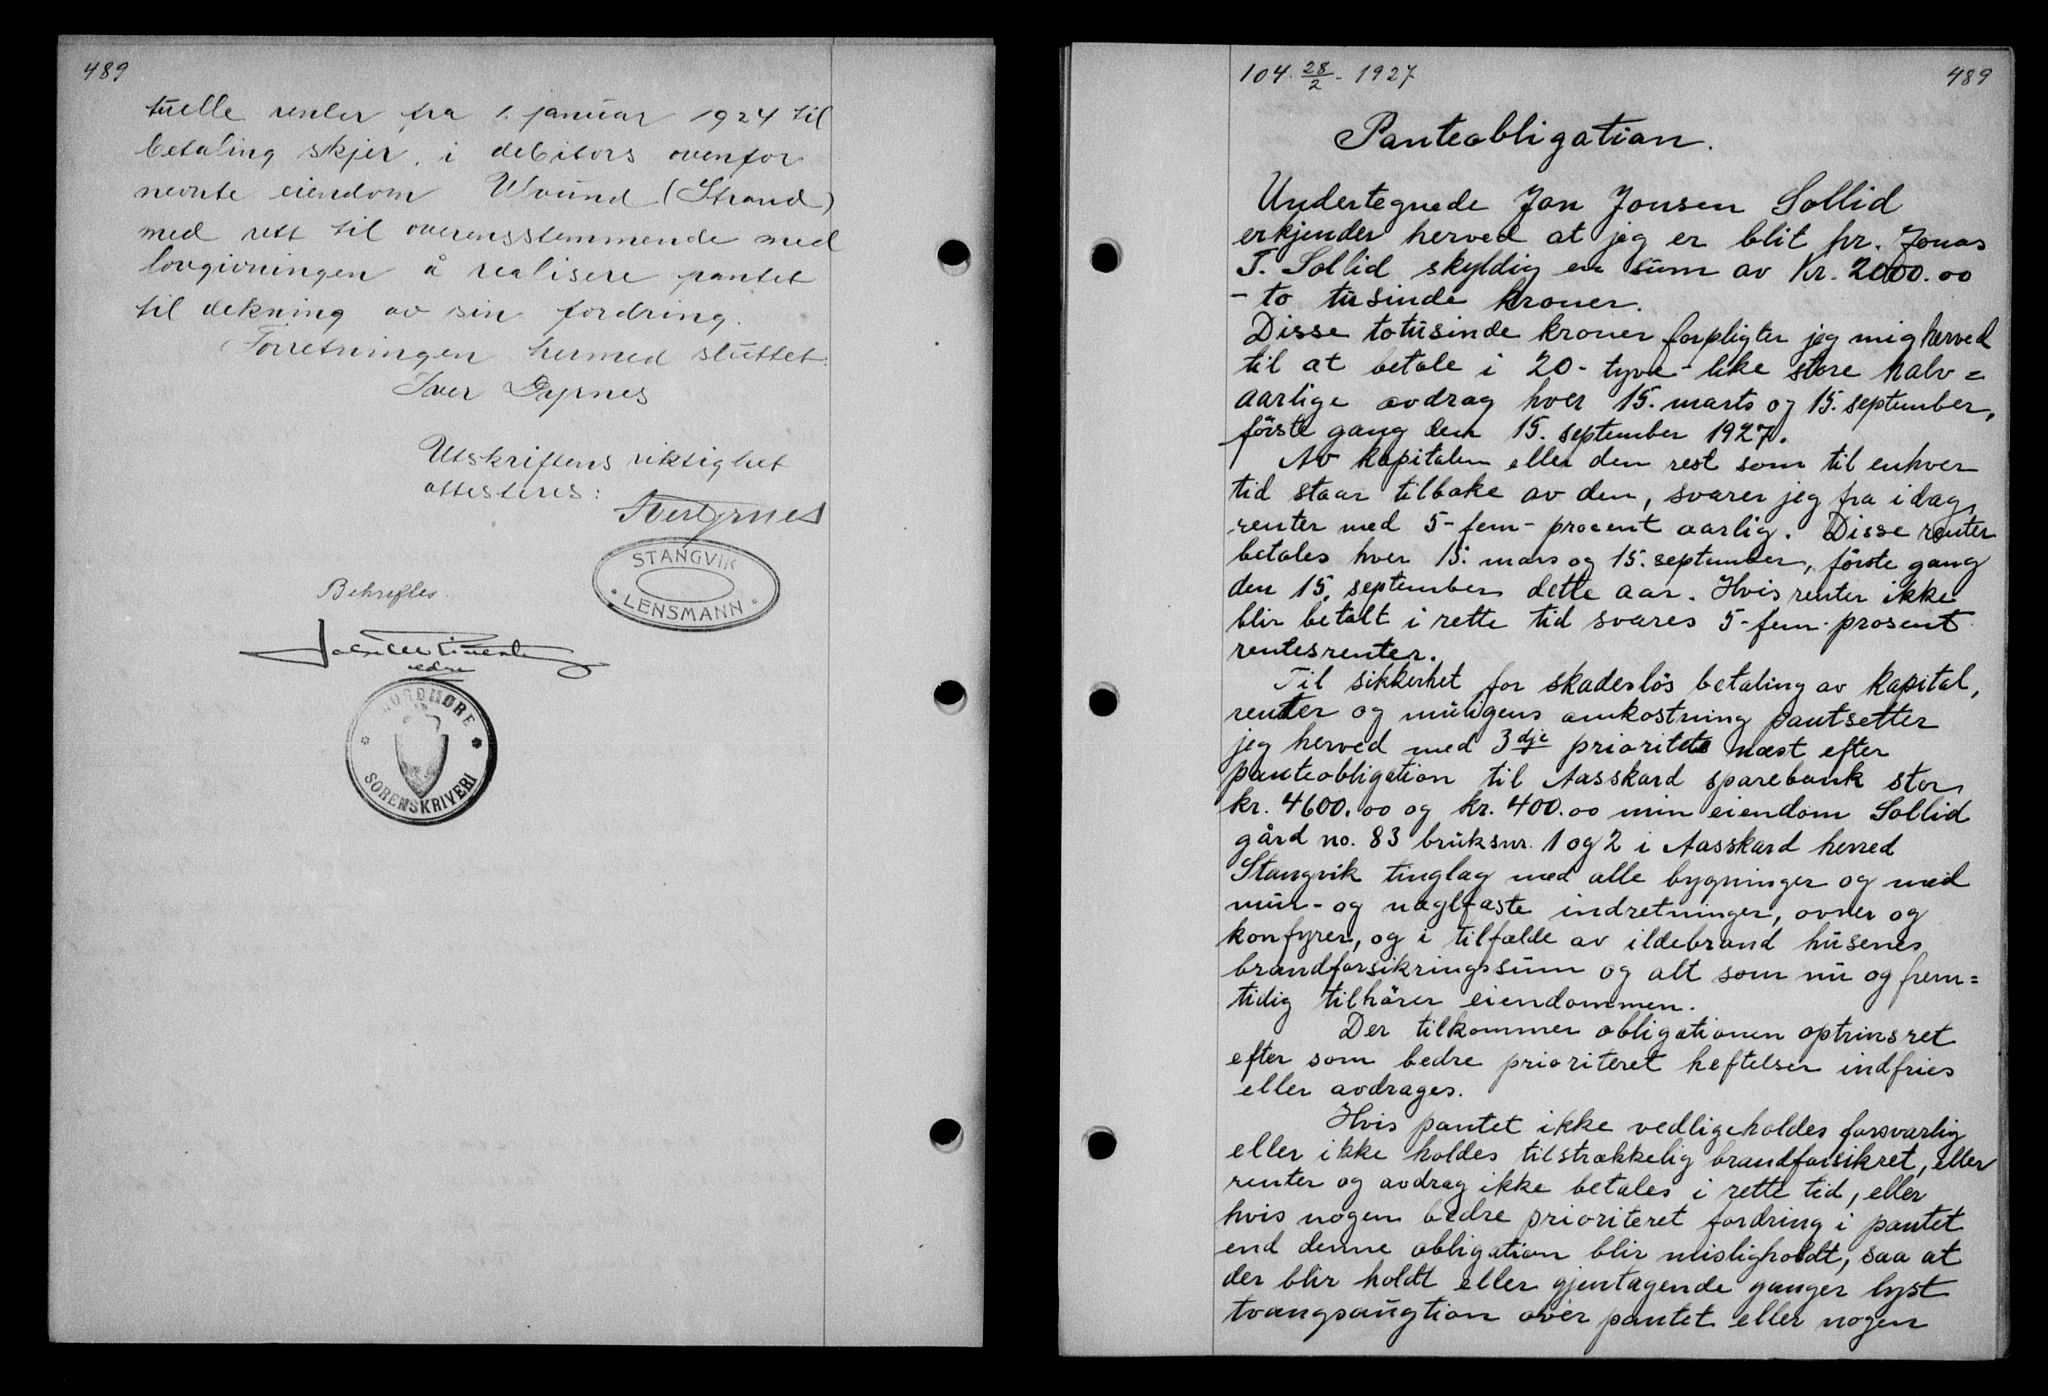 489
tuelle renter fra 1. januar 1924 til
betaling skjer, i debitors ovenfor
nevnte eiendom Ulvund (Strand)
med rett til overensstemmende med
lovgivningen å realisere pantet
til dekning av sin fordring.
Forretningen hermed sluttet.
Iver Dyrnes
Utskriftens riktighet
attesteres:
Iver Dyrnes
STANGVIK
LENSMANN
Bekreftes
NORDMØRE
SORENSKRIVERI
104. 28/2 - 1927
489
Panteobligation.
Undertegnede Jon Jonsen Sollid
erkjender herved at jeg er blit hr. Jonas
J. Sollid skyldig en sum av Kr. 2000.00
- to tusinde kroner.
Disse totusinde kroner forpligter jeg mig herved
til at betale i 20 - tyve - like store halv =
aarlige avdrag hver 15. marts og 15. september,
første gang den 15. september 1927.
Av kapitalen eller den rest som til enhver
tid staar tilbake av den, svarer jeg fra idag
renter med 5 - fem - procent aarlig. Disse renter
betales hver 15. mars og 15. september, første gang
den 15. september dette aar. Hvis renter ikke
blir betalt i rette tid svares 5 - fem - prosent
rentesrenter.
Til sikkerhet for skadesløs betaling av kapital,
renter og muligens omkostning pantsetter
jeg herved med 3dje prioritet næst efter
panteobligation til Aasskard sparebank stor
kr. 4600.00 og kr. 400.00 min eiendom Sollid
gård no. 83 bruksnr. 1 og 2 i Aasskard herred
Stangvik tinglag med alle bygninger og med
mur- og naglfaste indretninger, ovner og
konfyrer, og i tilfælde av ildebrand husenes
brandforsikringssum og alt som nu og frem=
tidig tilhører eiendommen.
Der tilkommer obligationen optrinsret
efter som bedre prioriteret heftelser indfries
eller avdrages.
Hvis pantet ikke vedligeholdes forsvarlig
eller ikke holdes tilstrækkelig brandforsikret, eller
renter og avdrag ikke betales i rette tid, eller
hvis nogen bedre prioriteret fordring i pantet
end denne obligation blir misligholdt, saa at
der blir holdt eller gjentagende ganger lyst
tvangsaugtion over pantet eller nogen